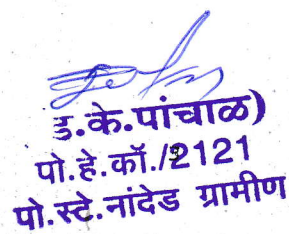 ड.के.पांचाळ)
पो.हे.कॉ./2121
पो.स्टे.नांदेड ग्रामीण